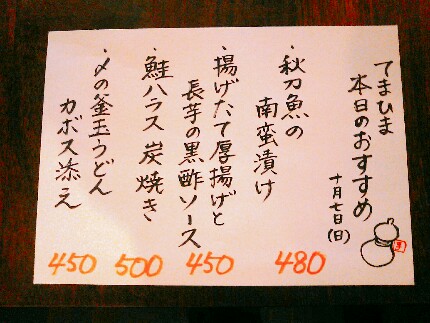 てまひま
本日のおすすめ
十月七日(日)
・秋刀魚の
南蛮漬け
480
・揚げたて厚揚げと
長芋の黒酢ソース
450
・鮭ハラス炭焼き
500
・〆の釜玉うどん
カボス添え
450